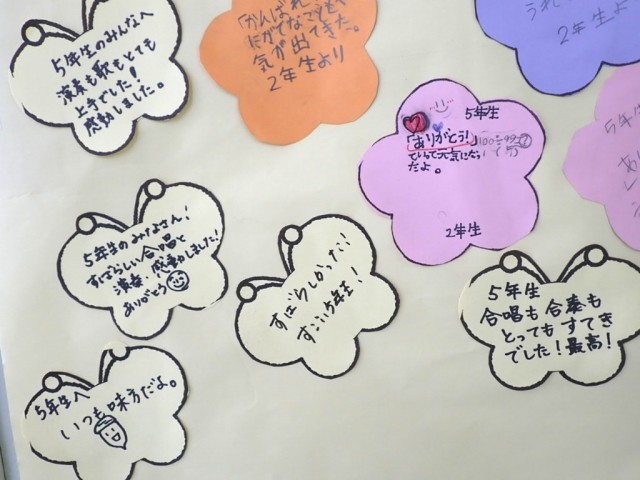 5年生のみんなへ
演奏も歌もとても
上手でした!
感動しました。
にがてなことも
気が出てきた。
2年生より
うれ
2年生よ
5年生
「ありがとう!」
だよ。
2年生
5年生のみなさん!
すばらしい合唱と
演奏 感動しました!
ありがとう
すばらしかった!
すごい5年生!
5年生
合唱も合奏も
とってもすてき
でした!最高!
5年生へ
いつも味方だよ。